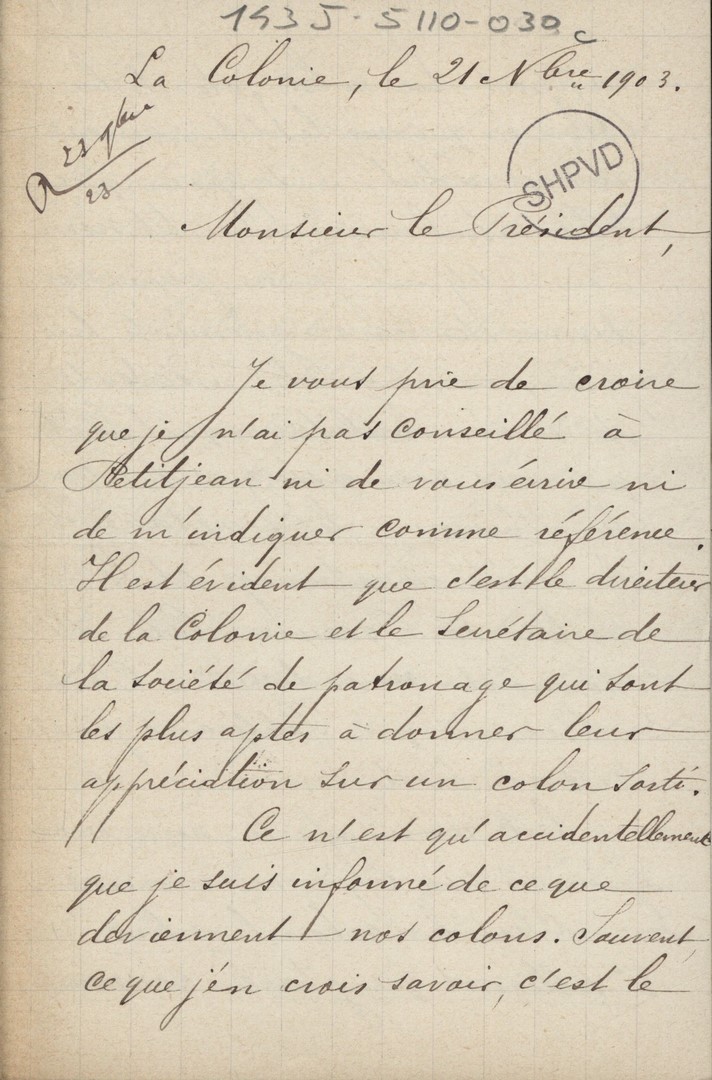 1935-5110-030
c
La Colonie, le 21 Nbre 1903.
R 23 9bre
23
SHPVD
Monsieur le Président,
Je vous prie de croire
que je n'ai pas conseillé à
Petitjean ni de vous écrire ni
de m'indiquer comme référence.
Il est évident que c'est le directeur
de la Colonie et le Secrétaire de
la société de patronage qui sont
les plus aptes à donner leur
appréciation sur un colon sorti.
Ce n'est qu'accidentellement
que je suis informé de ce que
deviennent nos colons. Souvent,
ce que j'en crois savoir, c'est le